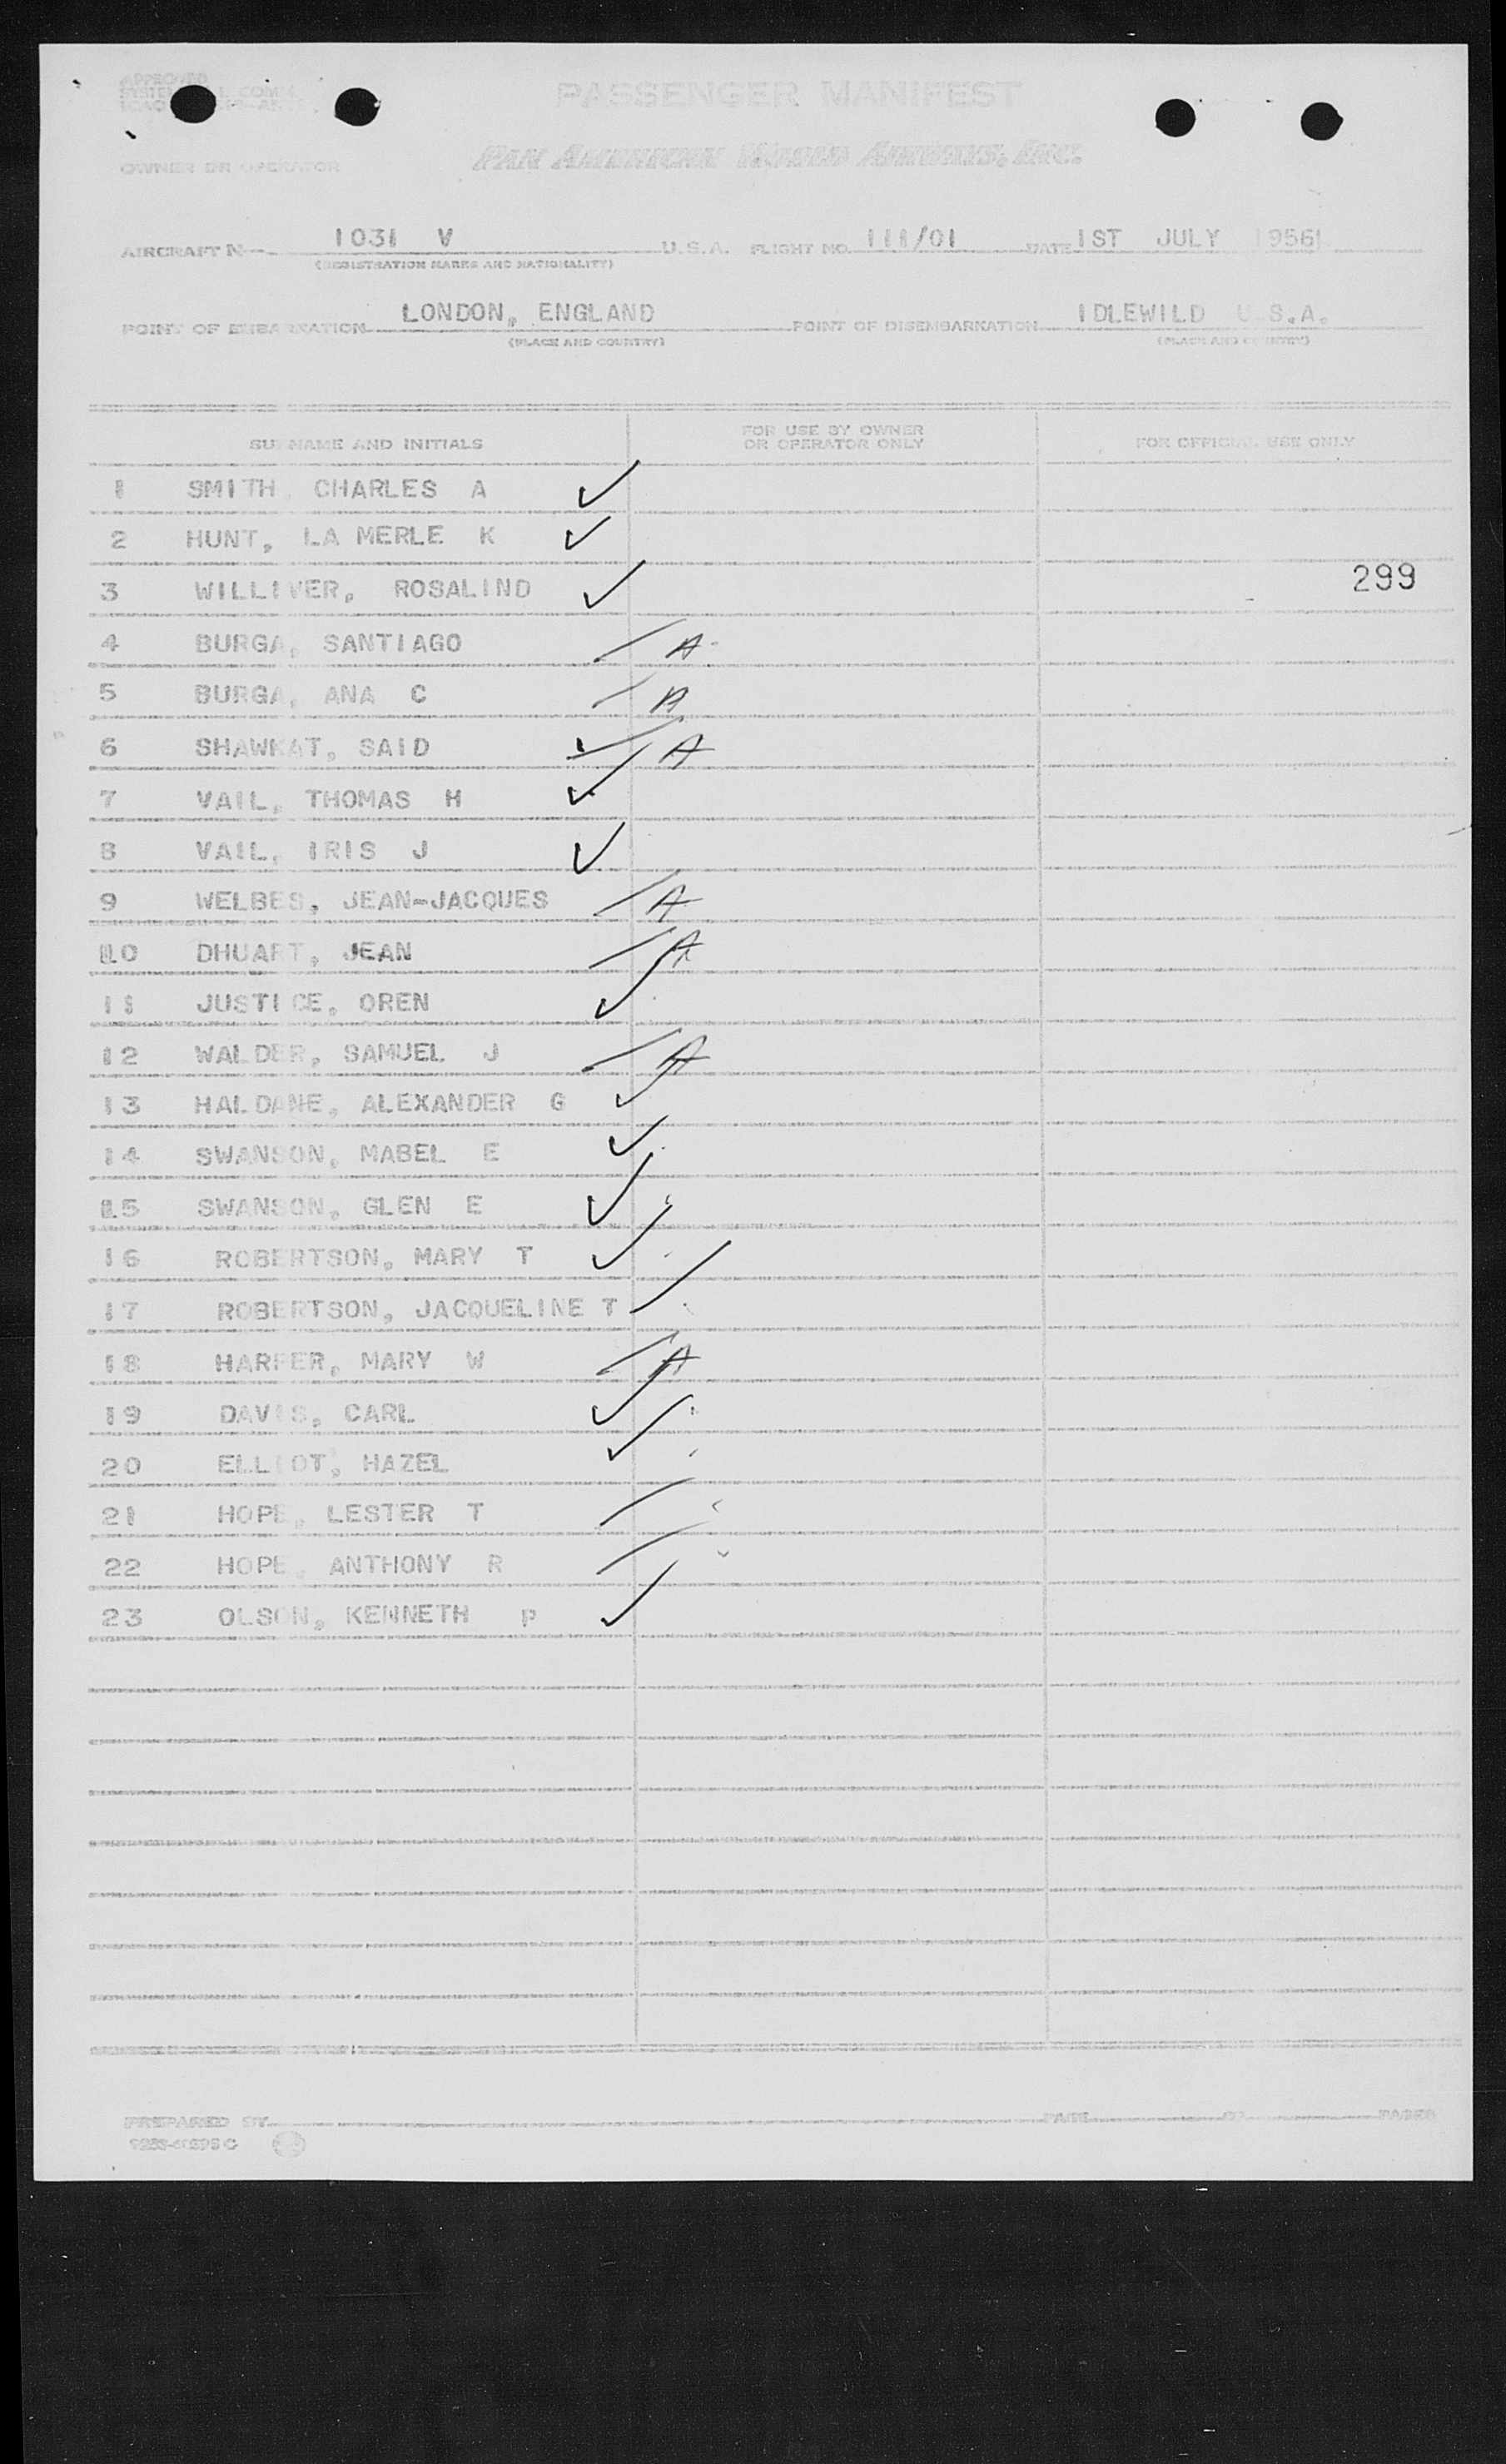 APPROVED
OWNER OR OPERATOR
PASSENGER MANIFEST
PAN AMERICAN WORLD AIRWAYS, INC.
AIRCRAFT N 1031 V U.S.A. FLIGHT NO. 111/01 DATE 1ST JULY 1956
(REGISTRATION MARKS AND NATIONALITY)
POINT OF EMBARKATION LONDON, ENGLAND POINT OF DISEMBARKATION IDLEWILD U.S.A.
(PLACE AND COUNTRY) (PLACE AND COUNTRY)
SURNAME AND INITIALS FOR USE BY OWNER OR OPERATOR ONLY FOR OFFICIAL USE ONLY
1 SMITH, CHARLES A
2 HUNT, LA MERLE K
3 WILLIVER, ROSALIND 299
4 BURGA, SANTIAGO A
5 BURGA, ANA C A
6 SHAWKAT, SAID A
7 VAIL, THOMAS H
8 VAIL, IRIS J
9 WELBES, JEAN-JACQUES A
10 DHUART, JEAN A
11 JUSTICE, OREN
12 WALDER, SAMUEL J A
13 HALDANE, ALEXANDER G
14 SWANSON, MABEL E
15 SWANSON, GLEN E
16 ROBERTSON, MARY T
17 ROBERTSON, JACQUELINE T
18 HARPER, MARY W A
19 DAVIS, CARL
20 ELLIOT, HAZEL
21 HOPE, LESTER T
22 HOPE, ANTHONY R
23 OLSON, KENNETH P
PREPARED BY PAGE OF PAGES